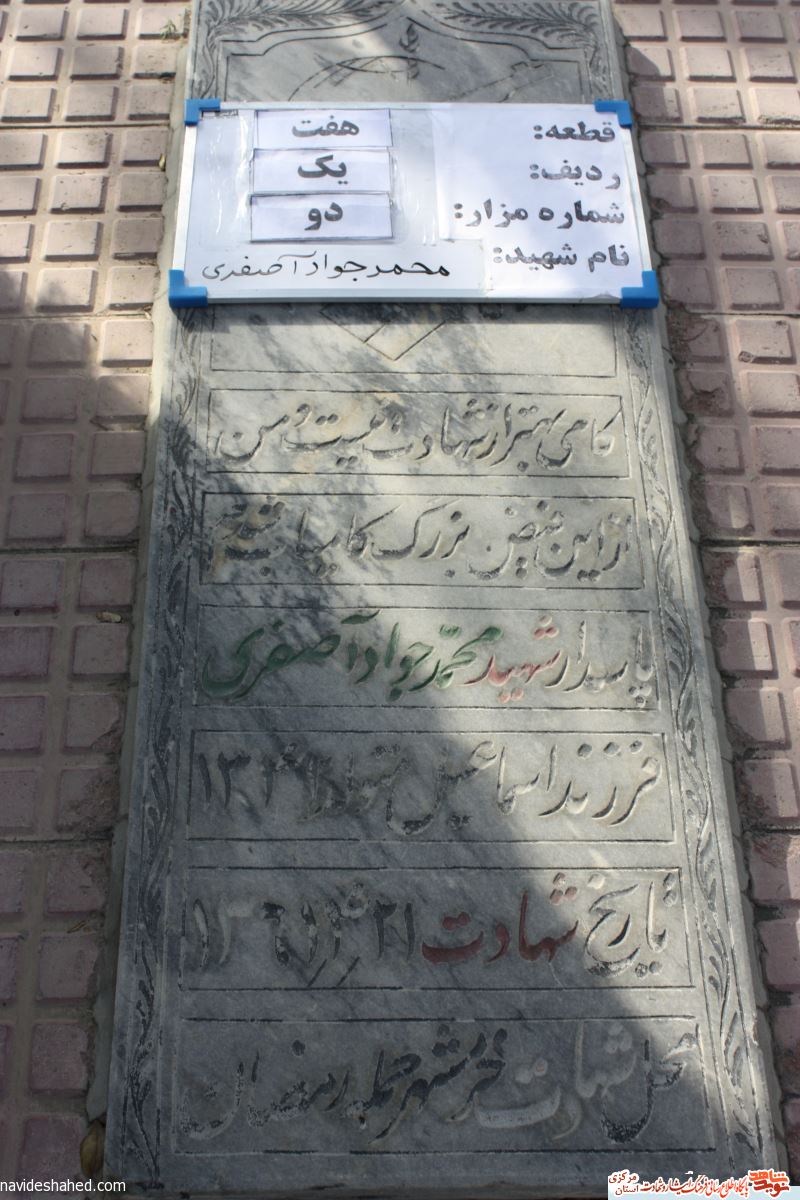 قطعه: هفت
ردیف: یک
شماره مزار: دو
نام شهید: محمدجواد آصفری
کامی بهتر از شهادت نیست و من
از این فیض بزرگ کامیاب شدم
پاسدار شهید محمد جواد آصفری
فرزند اسماعیل متولد ۱۳۴۹
تاریخ شهادت ۲۱
محل شهادت خرمشهر حمله رمضان
navideshahed.com
نوید شاهد
استان مرکزی